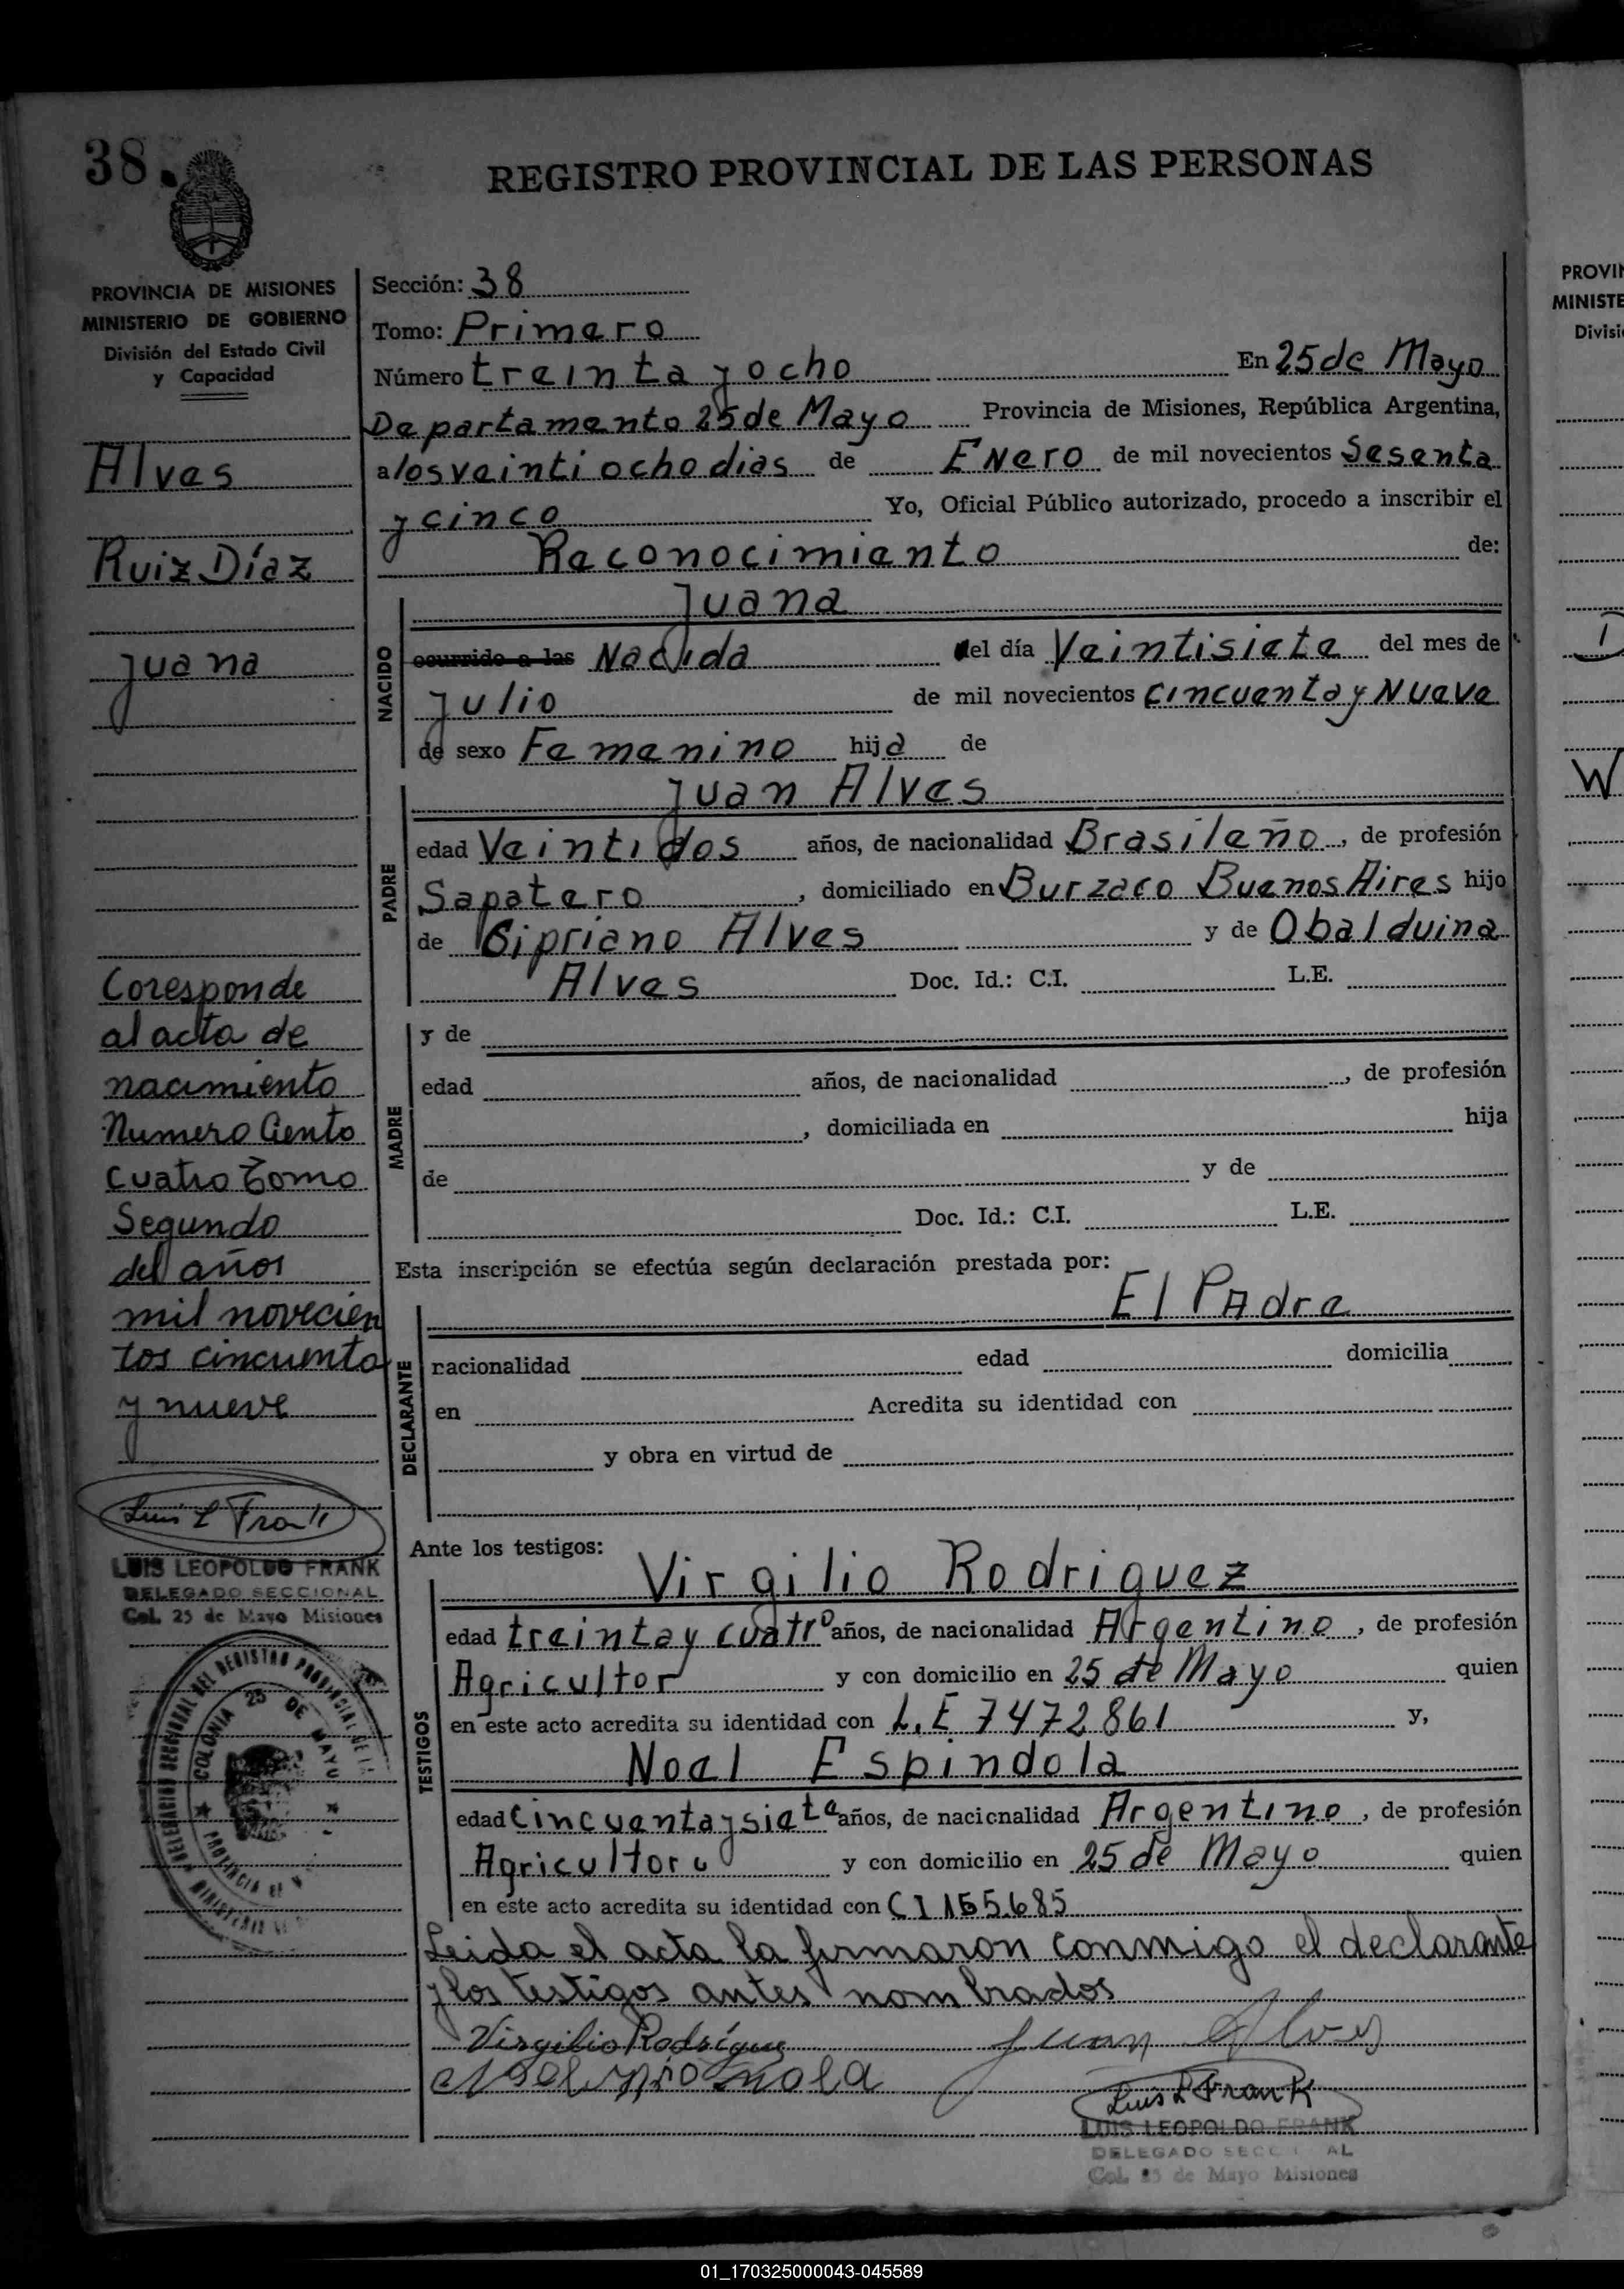 38.
REGISTRO PROVINCIAL DE LAS PERSONAS
PROVINCIA DE MISIONES
MINISTERIO DE GOBIERNO
División del Estado Civil
y Capacidad
Alves
Ruiz Díaz
Juana
Coresponde
al acta de
nacimiento
Numero Ciento
Cuatro Tomo
Segundo
del años
mil novecien
tos cincuenta
y nueve
Luis L Frank
LUIS LEOPOLDO FRANK
DELEGADO SECCIONAL
Col. 25 de Mayo Misiones
COLONIA 25 DE MAYO
Sección: 38
Tomo: Primero
Número treinta y ocho En 25 de Mayo
Departamento 25 de Mayo Provincia de Misiones, República Argentina,
a los veinti ocho dias de Enero de mil novecientos Sesenta
y cinco Yo, Oficial Público autorizado, procedo a inscribir el
Reconocimiento de:
Juana
NACIDO
ocurrido a las Nacida del día Veintisiete del mes de
Julio de mil novecientos cincuenta y Nueve
de sexo Femenino hija de
Juan Alves
PADRE
edad Veinti dos años, de nacionalidad Brasileño, de profesión
Sapatero, domiciliado en Burzaco Buenos Aires hijo
de Cipriano Alves y de Obalduina
Alves Doc. Id.: C.I. L.E.
MADRE
y de
edad años, de nacionalidad , de profesión
, domiciliada en hija
de y de
Doc. Id.: C.I. L.E.
Esta inscripción se efectúa según declaración prestada por:
El Padre
DECLARANTE
nacionalidad edad domicilia
en Acredita su identidad con
y obra en virtud de
Ante los testigos:
Virgilio Rodriguez
TESTIGOS
edad treinta y cuatro años, de nacionalidad Argentino, de profesión
Agricultor y con domicilio en 25 de Mayo quien
en este acto acredita su identidad con L.E 7472861 y,
Noel Espindola
edad cincuenta y siete años, de nacionalidad Argentino, de profesión
Agricultor y con domicilio en 25 de Mayo quien
en este acto acredita su identidad con CI 155.685
Leida el acta la firmaron conmigo el declarante
y los testigos antes nombrados
Virgilio Rodríguez Juan Alves
Luis L Frank
LUIS LEOPOLDO FRANK
DELEGADO SECC AL
Col. 25 de Mayo Misiones
PROVIN
MINISTE
Divisi
W
01_170325000043-045589